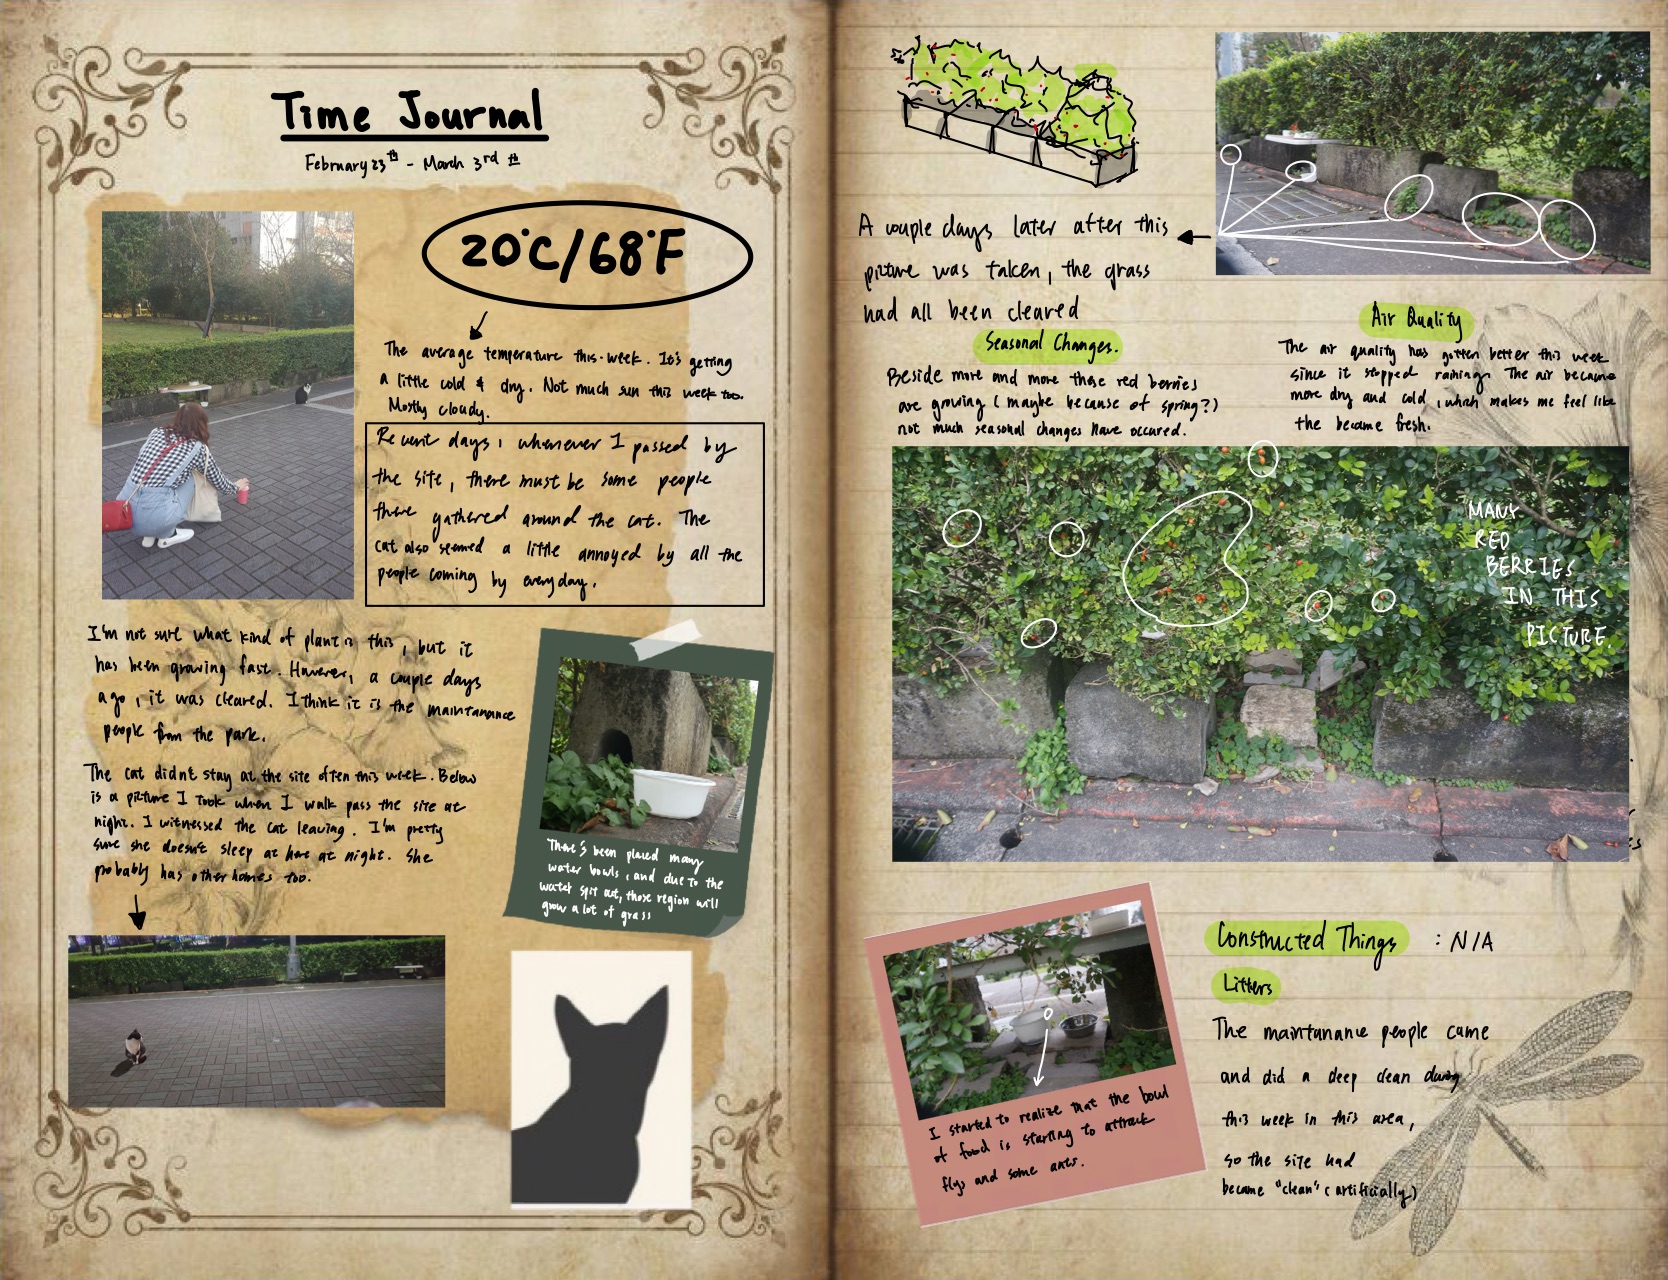 Time Journal
February 23th - March 3rd th
20°C/68°F
The average temperature this week. It's getting
a little cold & dry. Not much sun this week too.
Mostly cloudy.
Recent days, whenever I passed by
the site, there must be some people
there gathered around the cat. The
cat also seemed a little annoyed by all the
people coming by everyday.
I'm not sure what kind of plant is this, but it
has been growing fast. However, a couple days
ago, it was cleared. I think it is the maintanance
people from the park.
The cat didn't stay at the site often this week. Below
is a picture I took when I walk pass the site at
night. I witnessed the cat leaving. I'm pretty
sure she doesn't sleep at here at night. She
probably has other homes too.
There's been placed many
water bowls, and due to the
water spit out, those region will
grow a lot of grass
A couple days later after this
picture was taken, the grass
had all been cleared
Seasonal Changes.
Beside more and more these red berries
are growing (maybe because of spring?)
not much seasonal changes have occured.
Air Quality
The air quality has gotten better this week
since it stopped raining. The air became
more dry and cold, which makes me feel like
the became fresh.
MANY
RED
BERRIES
IN THIS
PICTURE.
I started to realize that the bowl
of food is starting to attract
flys and some ants.
Constructed Things : N/A
Litters
The maintanance people came
and did a deep clean during
this week in this area,
so the site had
became "clean" (artificially)